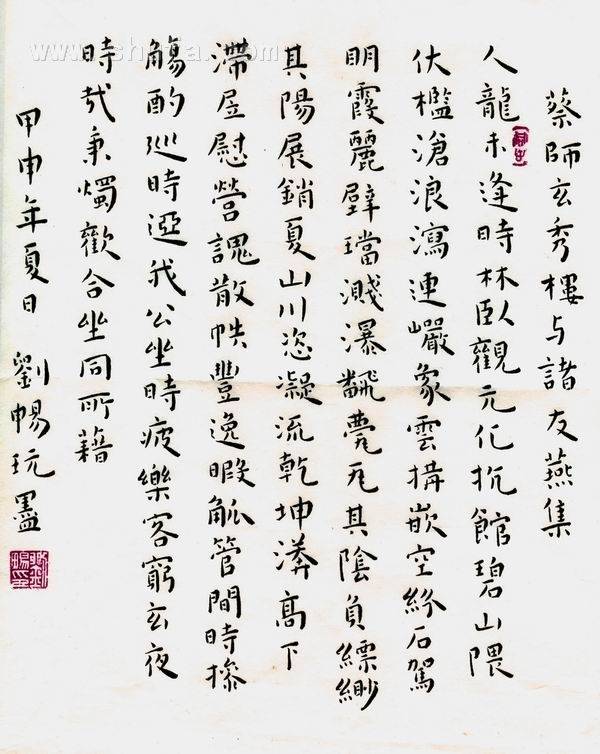 蔡師玄秀樓与諸友燕集
人龍未逢時林臥觀元化抗館碧山隈
伏檻滄浪瀉連巘象雲構嵌空絲石駕
明霞麗璧璫濺瀑飜甍瓦其陰負縹緲
其陽展銷夏山川恣凝流乾坤漭高下
滯屋慰營謜散帙豐逸暇觚管間時摻
觴酌巡時迓我公坐時疲樂客窮玄夜
時哉秉燭歡合坐同所藉
甲申年夏日 劉暢玩墨